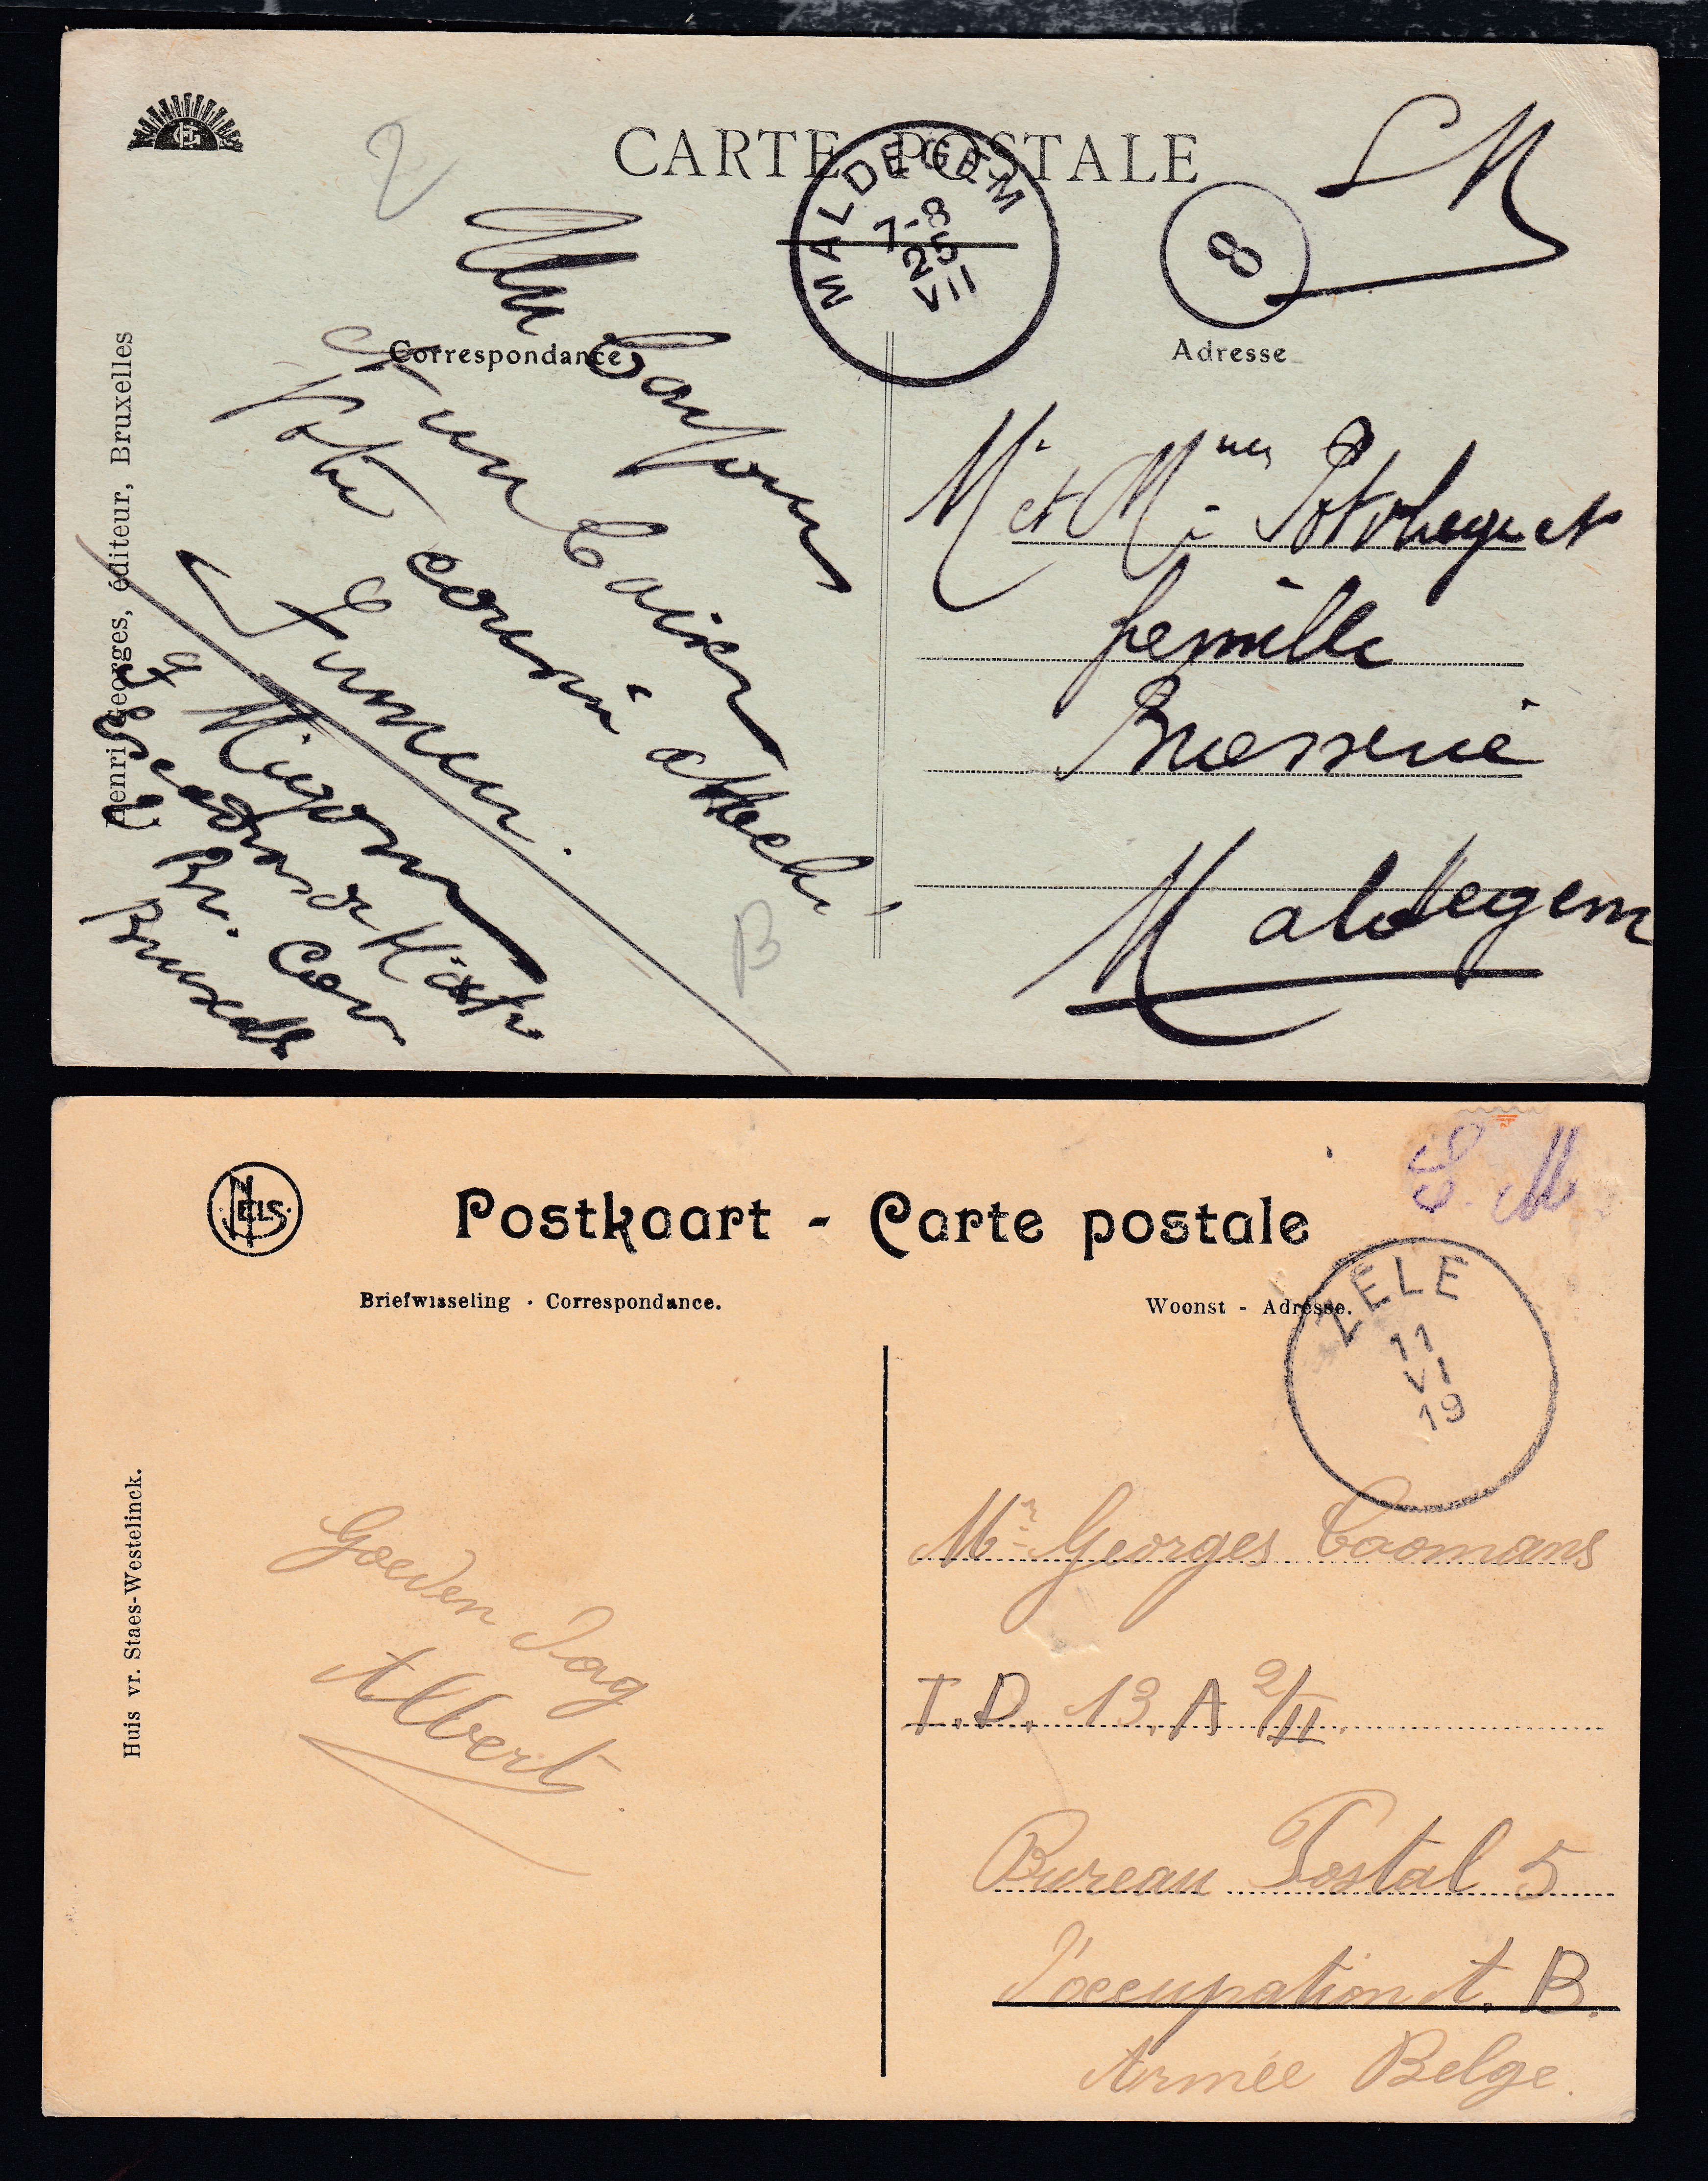 CARTE POSTALE
SM
2
MALDEGEM
7-8
25
VII
8
Correspondance
Adresse
Henri Georges, éditeur, Bruxelles
Un bonjour
un baiser
Votre
Mr et Mme
et
famille
Brasserie
Maldegem
Migom
Br. Cav
B
NELS
Postkaart - Carte postale
S. M
Briefwisseling · Correspondance.
Woonst - Adresse.
ZELE
11
VI
19
Huis vr. Staes-Westelinck.
Goeden dag
Albert
Mr. Georges Coomans
T.D. 13, A 2/II.
Bureau Postal 5
d'occupation A. B.
Armée Belge.